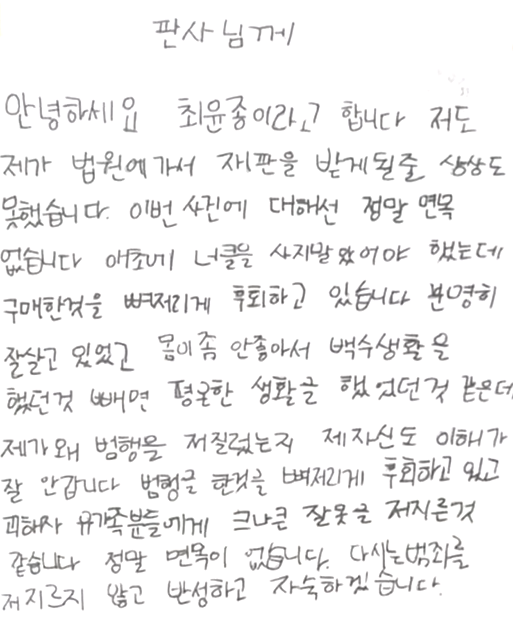 판사님께
안녕하세요 최윤종이라고 합니다 저도
제가 법원에가서 재판을 받게될줄 상상도
못했습니다. 이번 사건에 대해선 정말 면목
없습니다 애초에 너클을 사지말았어야 했는데
구매한것을 뼈저리게 후회하고 있습니다 분명히
잘살고 있었고 몸이좀 안좋아서 백수생활을
했던것 빼면 평균한 생활을 했었던것 같은데
제가왜 범행을 저질렀는지 제자신도 이해가
잘 안갑니다 범행을 한것을 뼈저리게 후회하고 있고
피해자 유가족분들에게 크나큰 잘못을 저지른것
같습니다 정말 면목이 없습니다. 다시는범죄를
저지르지 않고 반성하고 자숙하겠습니다.